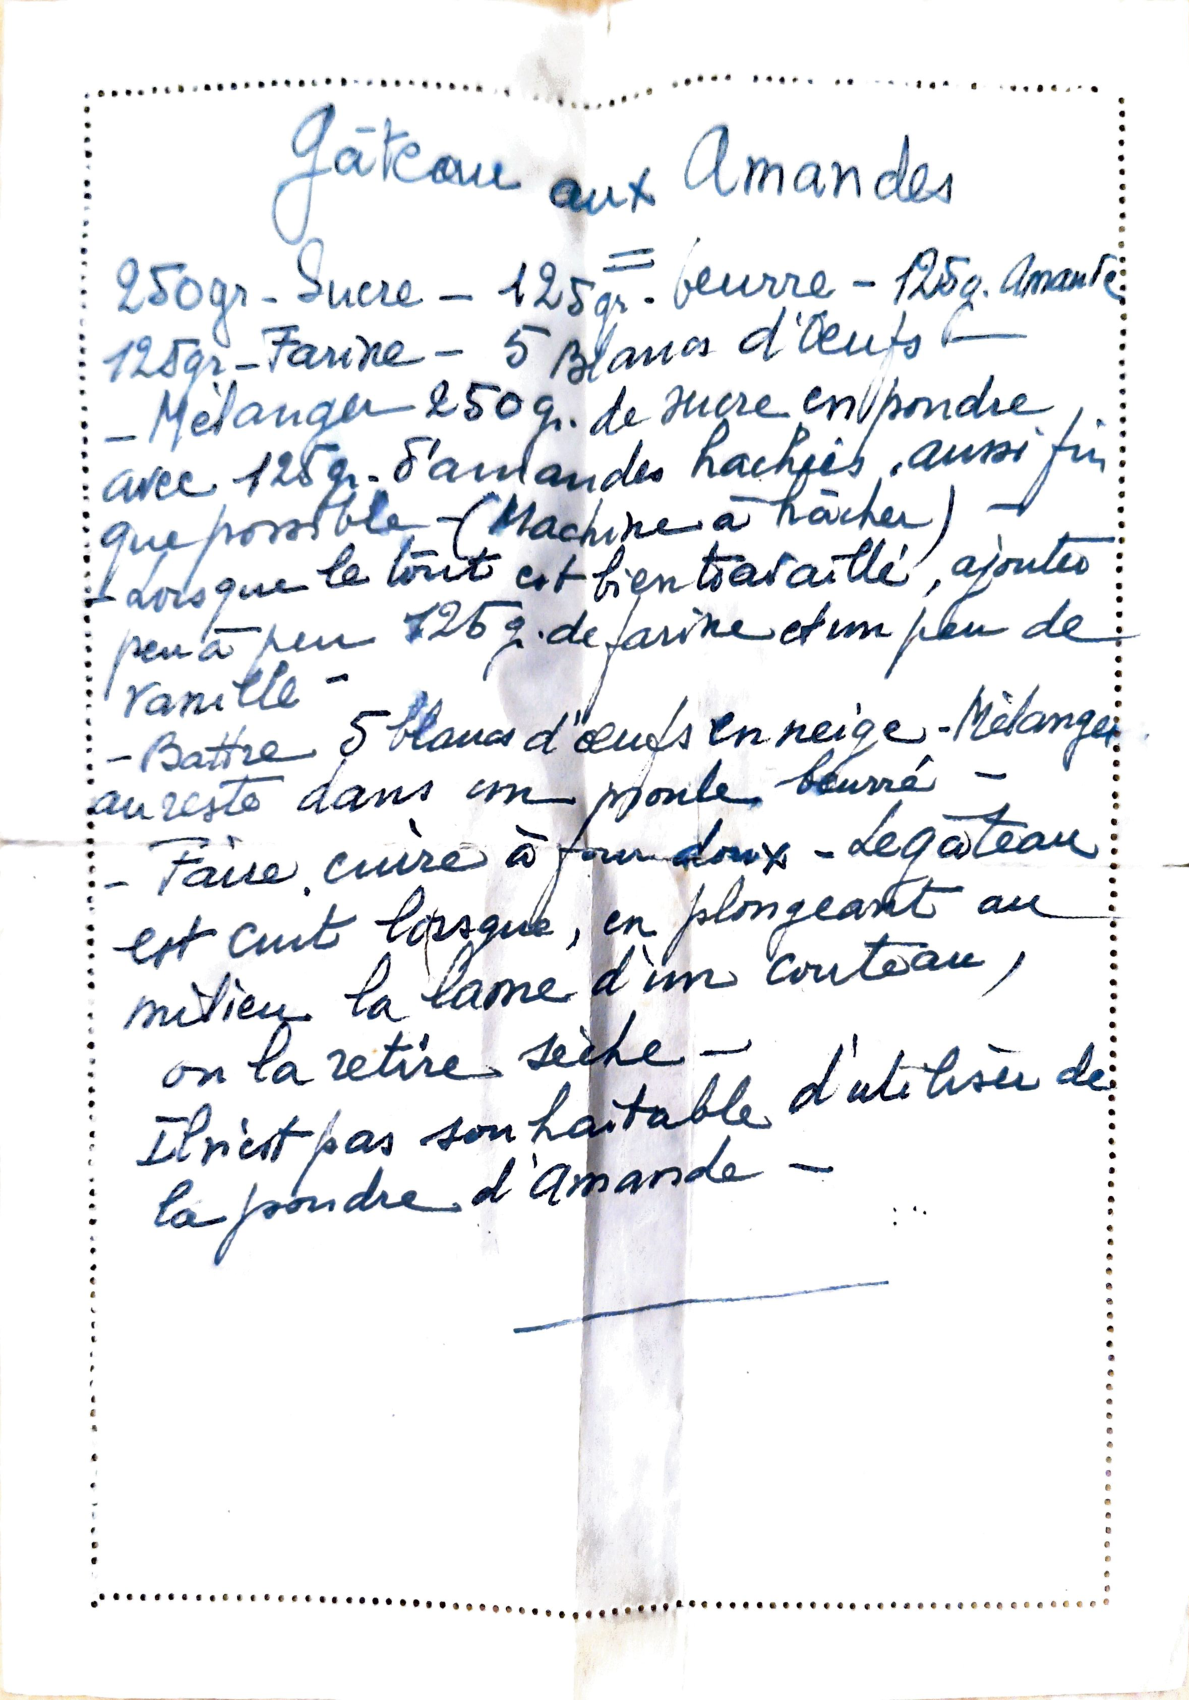 Gâteau aux Amandes
250gr - Sucre - 125gr - beurre - 125g. Amande
125gr - Farine - 5 Blancs d'Oeufs -
- Mélanger 250g. de sucre en poudre,
avec 125gr. d'amandes hachiés, aussi fin
que possible - (Machine à hâcher) -
- Lorsque le tout est bien travaillé, ajouter
peu à peu 125g. de farine et un peu de
vanille -
- Battre 5 blancs d'œufs en neige - Mélanger
au reste dans un moule beurré -
- Faire cuire à four doux - Le gâteau
est cuit lorsque, en plongeant au
milieu la lame d'un couteau,
on la retire sèche -
Il n'est pas souhaitable d'utiliser de
la poudre d'Amande -